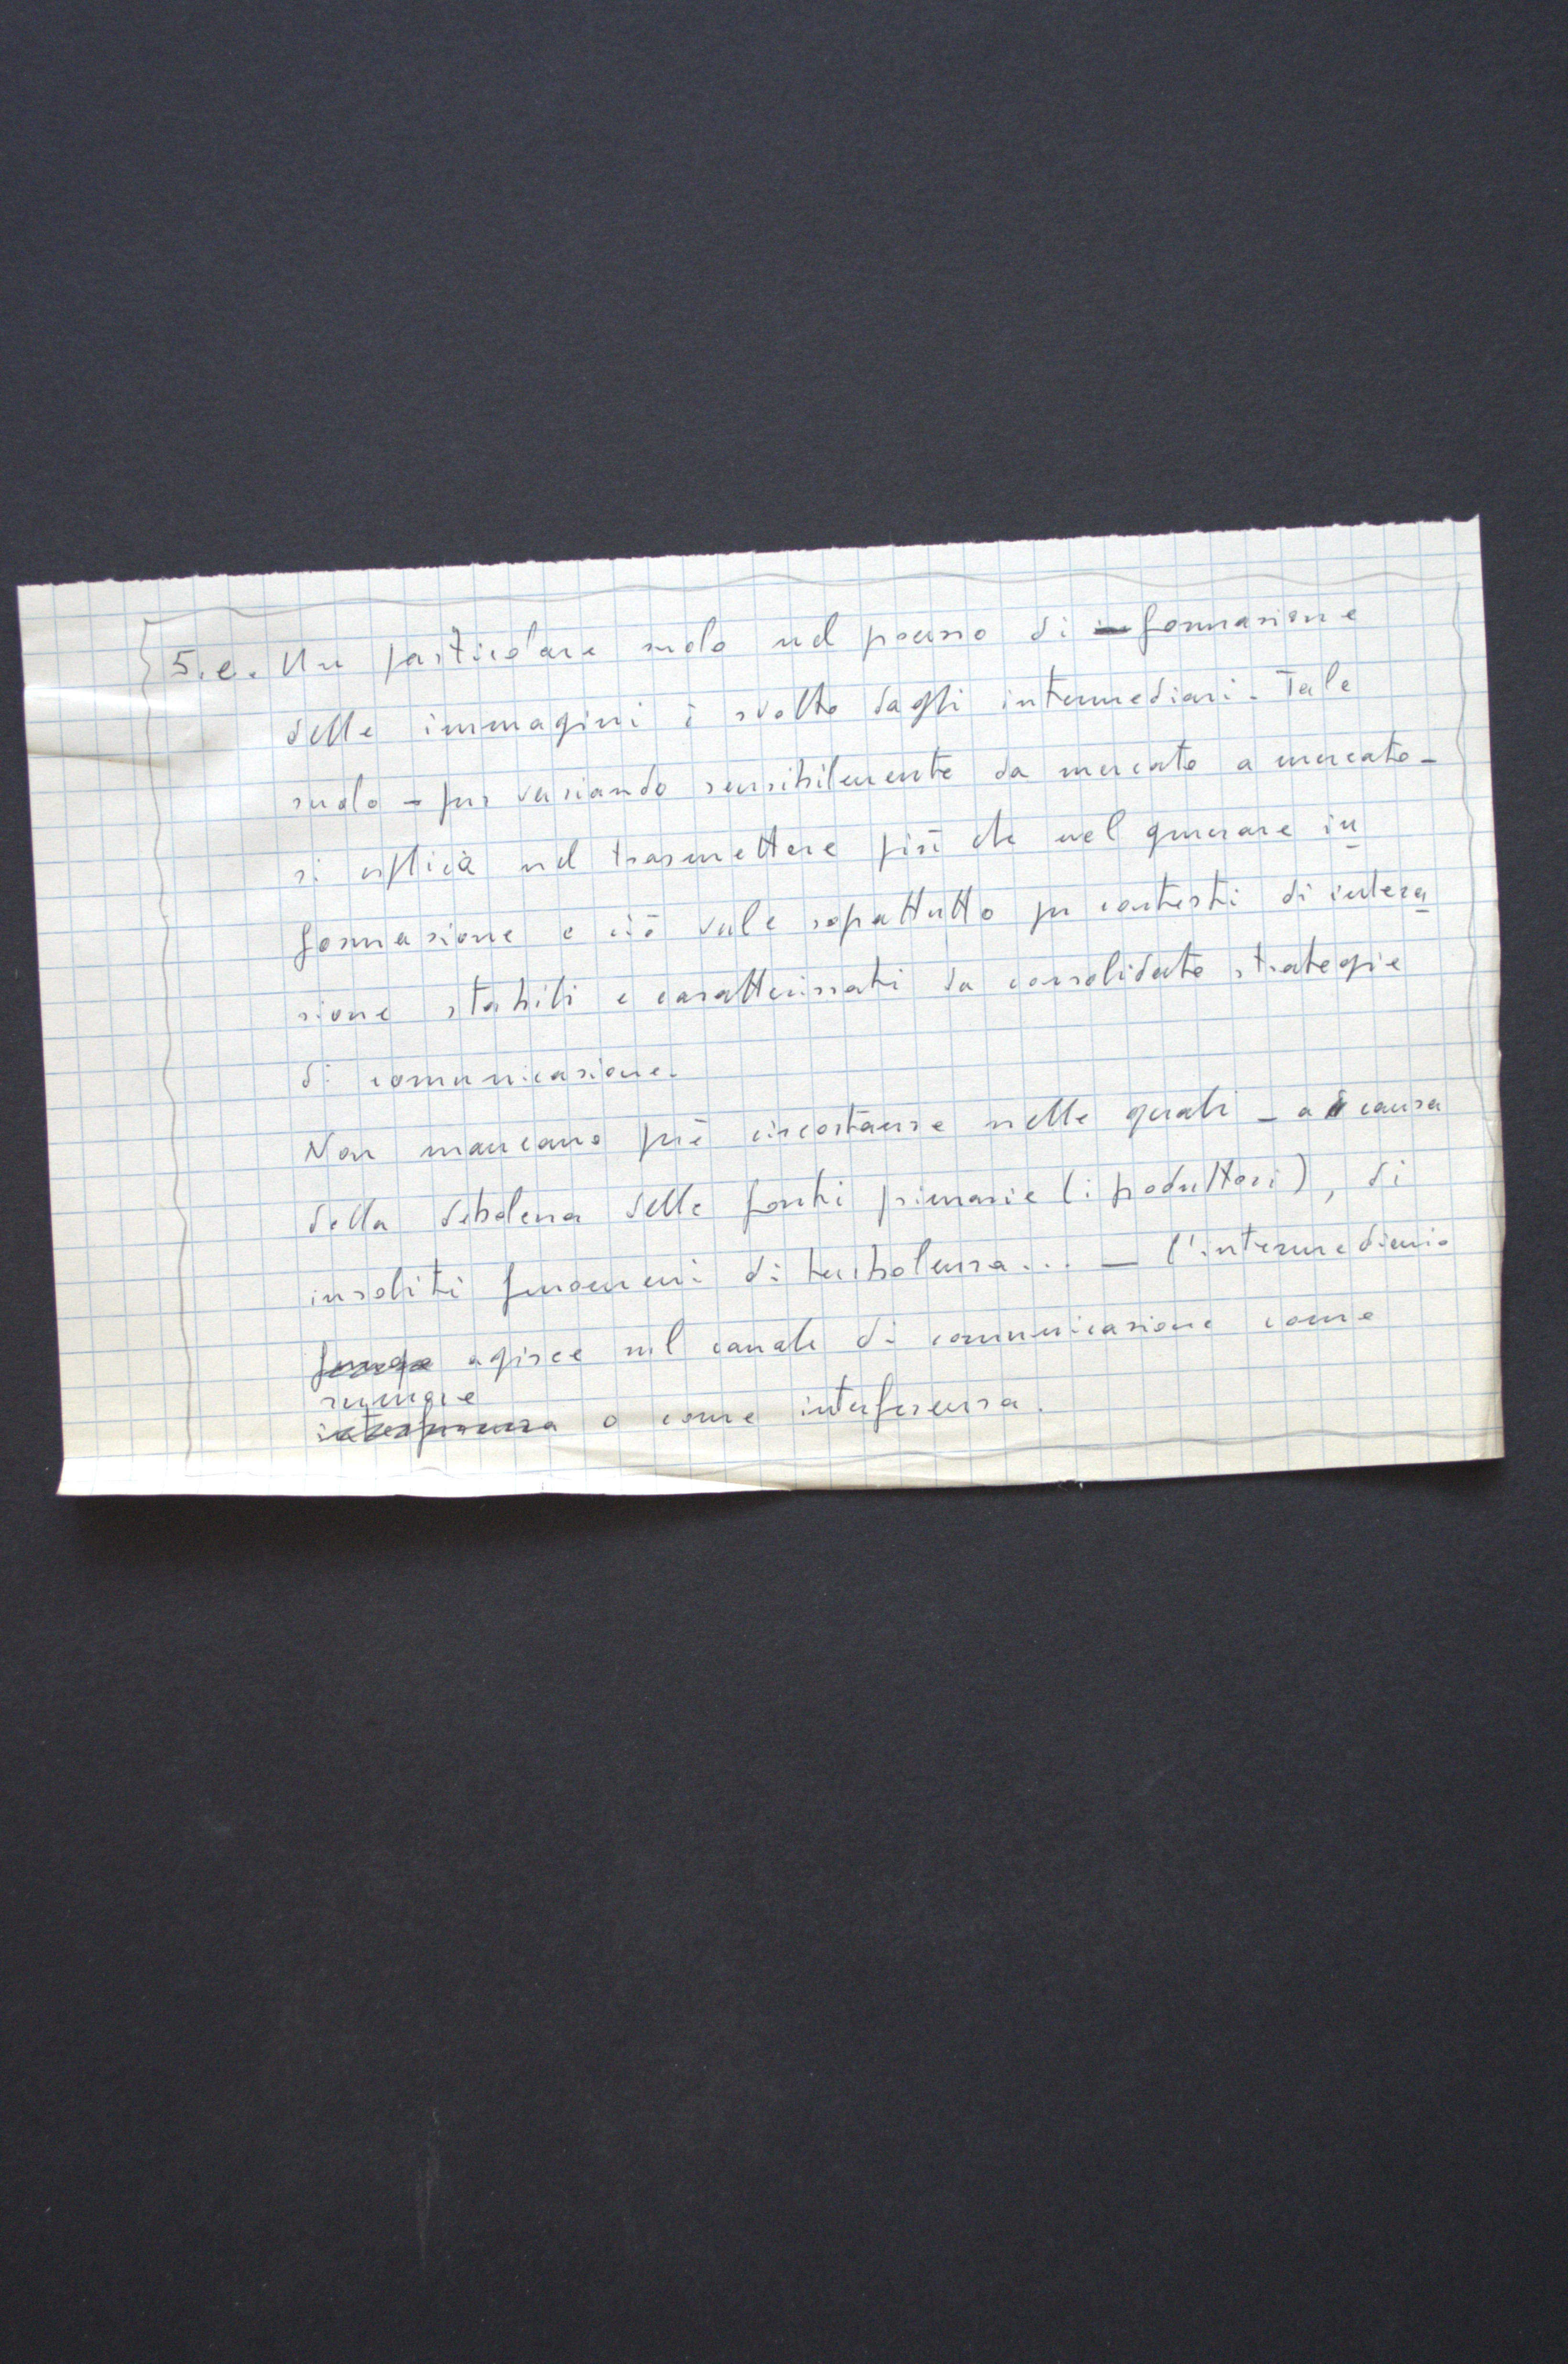 5.e. Un particolare ruolo nel processo di formazione
delle immagini è svolto dagli intermediari. Tale
ruolo - pur variando sensibilmente da mercato a mercato -
si esplica nel trasmettere più che nel generare in
formazione e ciò vale sopattutto per contesti di intera
zione stabili e caratterizzati da consolidate strategie
di comunicazione.
Non mancano però circostanze nelle quali - a causa
della debolezza delle fonti primarie (i produttori), di
insoliti fenomeni di turbolenza... - l'intermediario
agisce nel canale di comunicazione come
sinergie
o come interferenza.